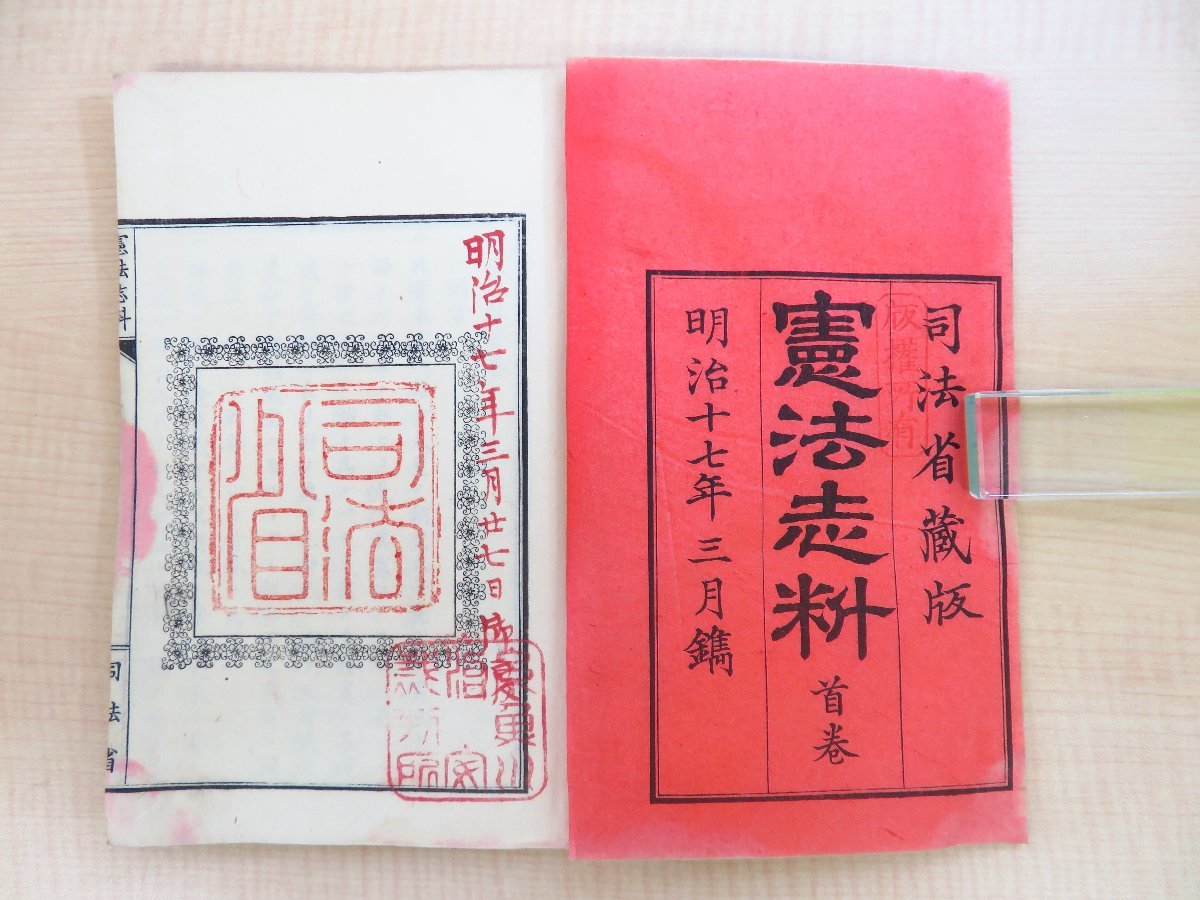 司法省藏版
憲法志料 首卷
明治十七年三月鐫
版權所有
明治十七年三月廿七日
司法省
憲法志料
司法省
治安裁判所